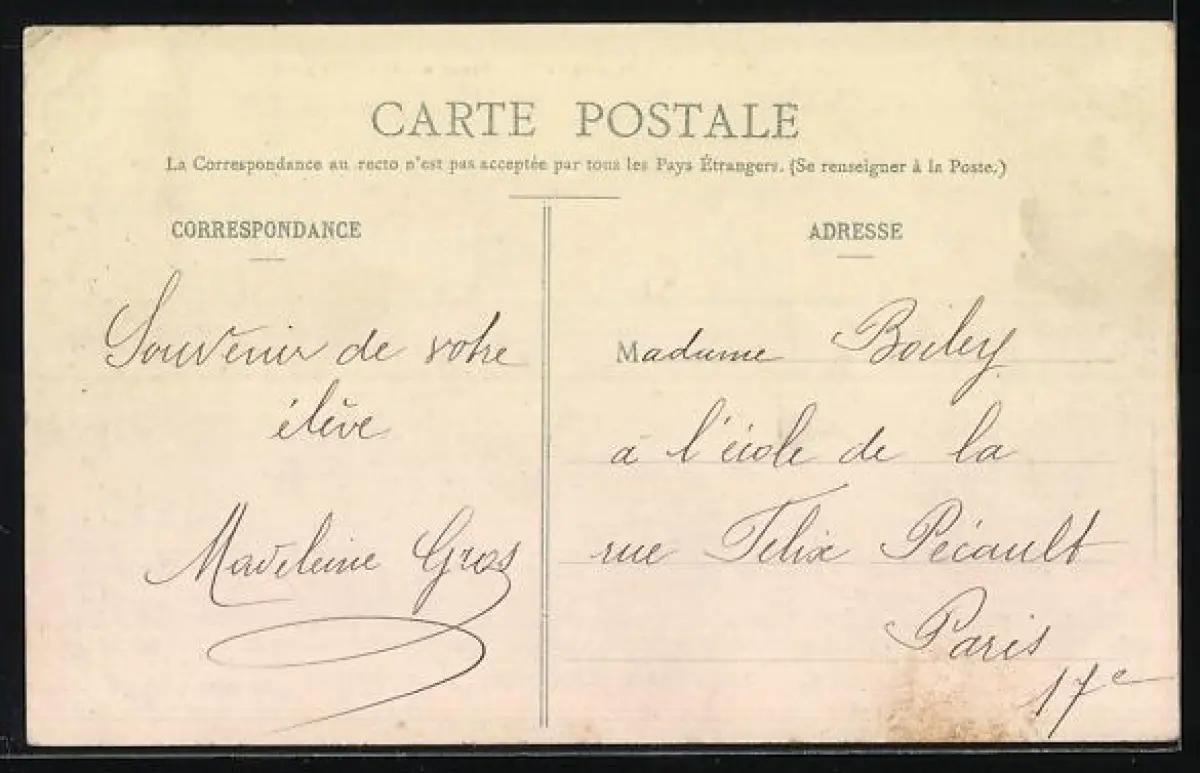 CARTE POSTALE
La Correspondance au recto n'est pas acceptée par tous les Pays Étrangers. (Se renseigner à la Poste.)
CORRESPONDANCE
Souvenir de votre
élève
Madeleine Gros
ADRESSE
Madame Boiley
à l'école de la
rue Félix Pécault
Paris
17e